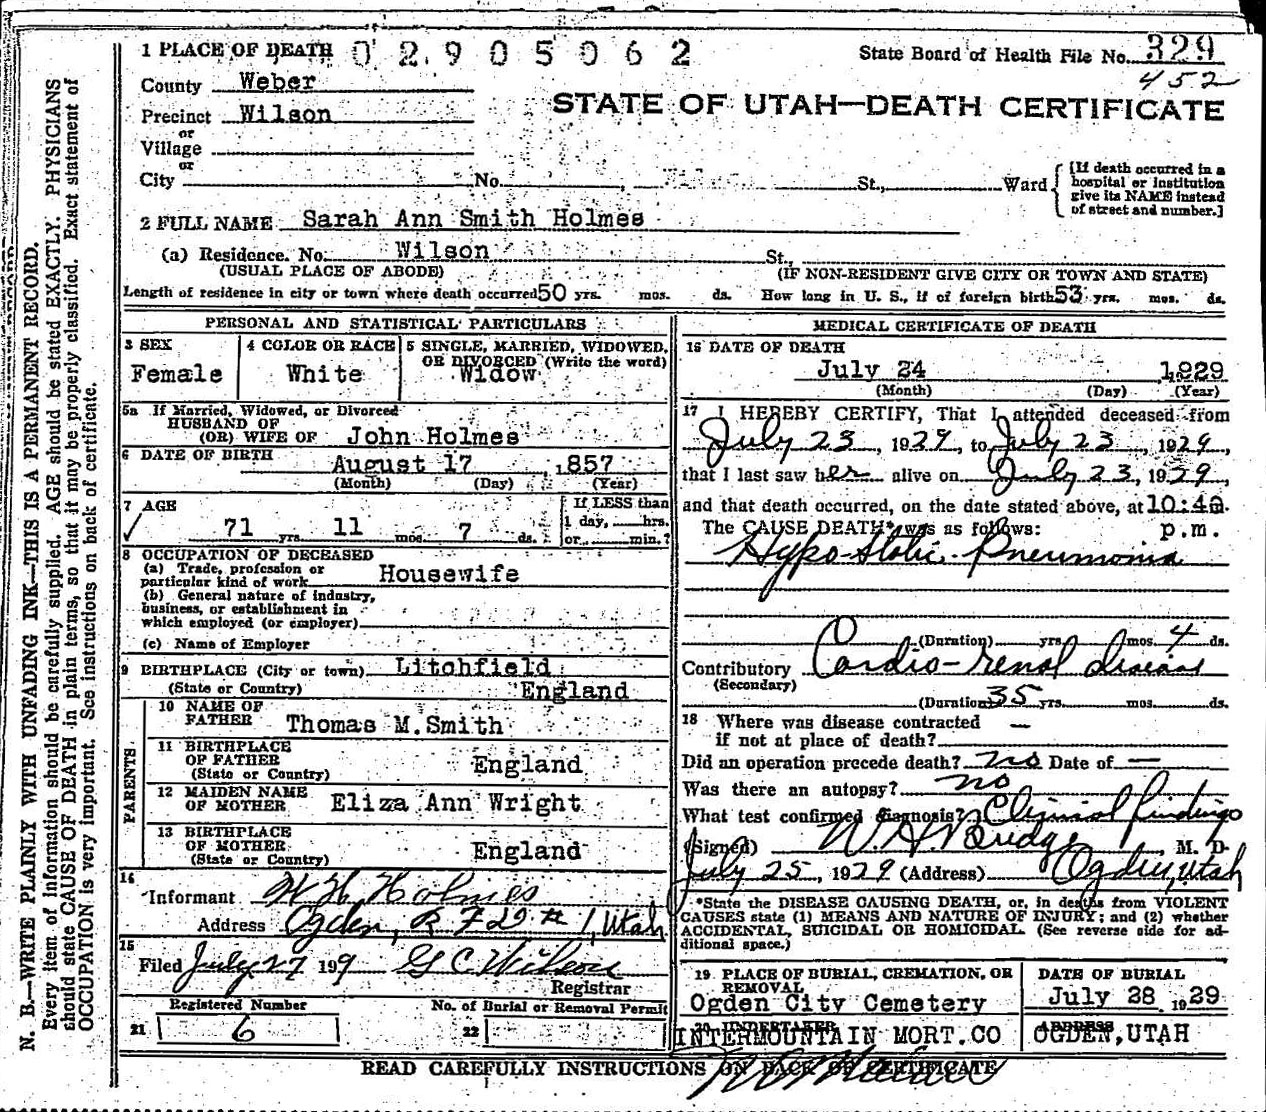 1 PLACE OF DEATH 02905062
State Board of Health File No. 329
452
County Weber
STATE OF UTAH—DEATH CERTIFICATE
Precinct Wilson
or
Village
or
City No. St., Ward
[If death occurred in a
hospital or institution
give its NAME instead
of street and number.]
2 FULL NAME Sarah Ann Smith Holmes
(a) Residence. No. Wilson St.,
(USUAL PLACE OF ABODE) (IF NON-RESIDENT GIVE CITY OR TOWN AND STATE)
Length of residence in city or town where death occurred 50 yrs. mos. ds. How long in U. S., if of foreign birth 53 yrs. mos. ds.
PERSONAL AND STATISTICAL PARTICULARS
3 SEX
Female
4 COLOR OR RACE
White
5 SINGLE, MARRIED, WIDOWED,
OR DIVORCED (Write the word)
Widow
5a If Married, Widowed, or Divorced
HUSBAND OF
(OR) WIFE OF John Holmes
6 DATE OF BIRTH
August 17, 1857
(Month) (Day) (Year)
7 AGE
71 yrs. 11 mos. 7 ds.
If LESS than
1 day, hrs.
or min.?
8 OCCUPATION OF DECEASED
(a) Trade, profession or
particular kind of work Housewife
(b) General nature of industry,
business, or establishment in
which employed (or employer)
(c) Name of Employer
9 BIRTHPLACE (City or town) Litchfield
(State or Country) England
PARENTS
10 NAME OF
FATHER Thomas M. Smith
11 BIRTHPLACE
OF FATHER
(State or Country) England
12 MAIDEN NAME
OF MOTHER Eliza Ann Wright
13 BIRTHPLACE
OF MOTHER
(State or Country) England
14
Informant W H Holmes
Address Ogden, R F D # 1, Utah
15
Filed July 27 199 G C Wilson
Registrar
Registered Number
21 6
No. of Burial or Removal Permit
22
MEDICAL CERTIFICATE OF DEATH
16 DATE OF DEATH
July 24 1929
(Month) (Day) (Year)
17 I HEREBY CERTIFY, That I attended deceased from
July 23, 1929, to July 23, 1929,
that I last saw her alive on July 23, 1929,
and that death occurred, on the date stated above, at 10:40
The CAUSE DEATH* was as follows: p.m.
Hypo Static Pneumonia
(Duration) yrs. mos. 4 ds.
Contributory Cardio-renal disease
(Secondary)
(Duration) 35 yrs. mos. ds.
18 Where was disease contracted —
if not at place of death?
Did an operation precede death? no Date of —
Was there an autopsy? no
What test confirmed diagnosis? Clinical findings
(Signed) W. H. Budge, M. D.
July 25, 1929 (Address) Ogden, Utah
*State the DISEASE CAUSING DEATH, or, in deaths from VIOLENT
CAUSES state (1) MEANS AND NATURE OF INJURY; and (2) whether
ACCIDENTAL, SUICIDAL OR HOMICIDAL. (See reverse side for ad-
ditional space.)
19 PLACE OF BURIAL, CREMATION, OR
REMOVAL
Ogden City Cemetery
DATE OF BURIAL
July 28 1929
20 UNDERTAKER
INTERMOUNTAIN MORT.CO
ADDRESS
OGDEN,UTAH
READ CAREFULLY INSTRUCTIONS ON BACK OF CERTIFICATE
N. B.—WRITE PLAINLY WITH UNFADING INK—THIS IS A PERMANENT RECORD.
Every item of information should be carefully supplied. AGE should be stated EXACTLY. PHYSICIANS
should state CAUSE OF DEATH in plain terms, so that it may be properly classified. Exact statement of
OCCUPATION is very important. See instructions on back of certificate.